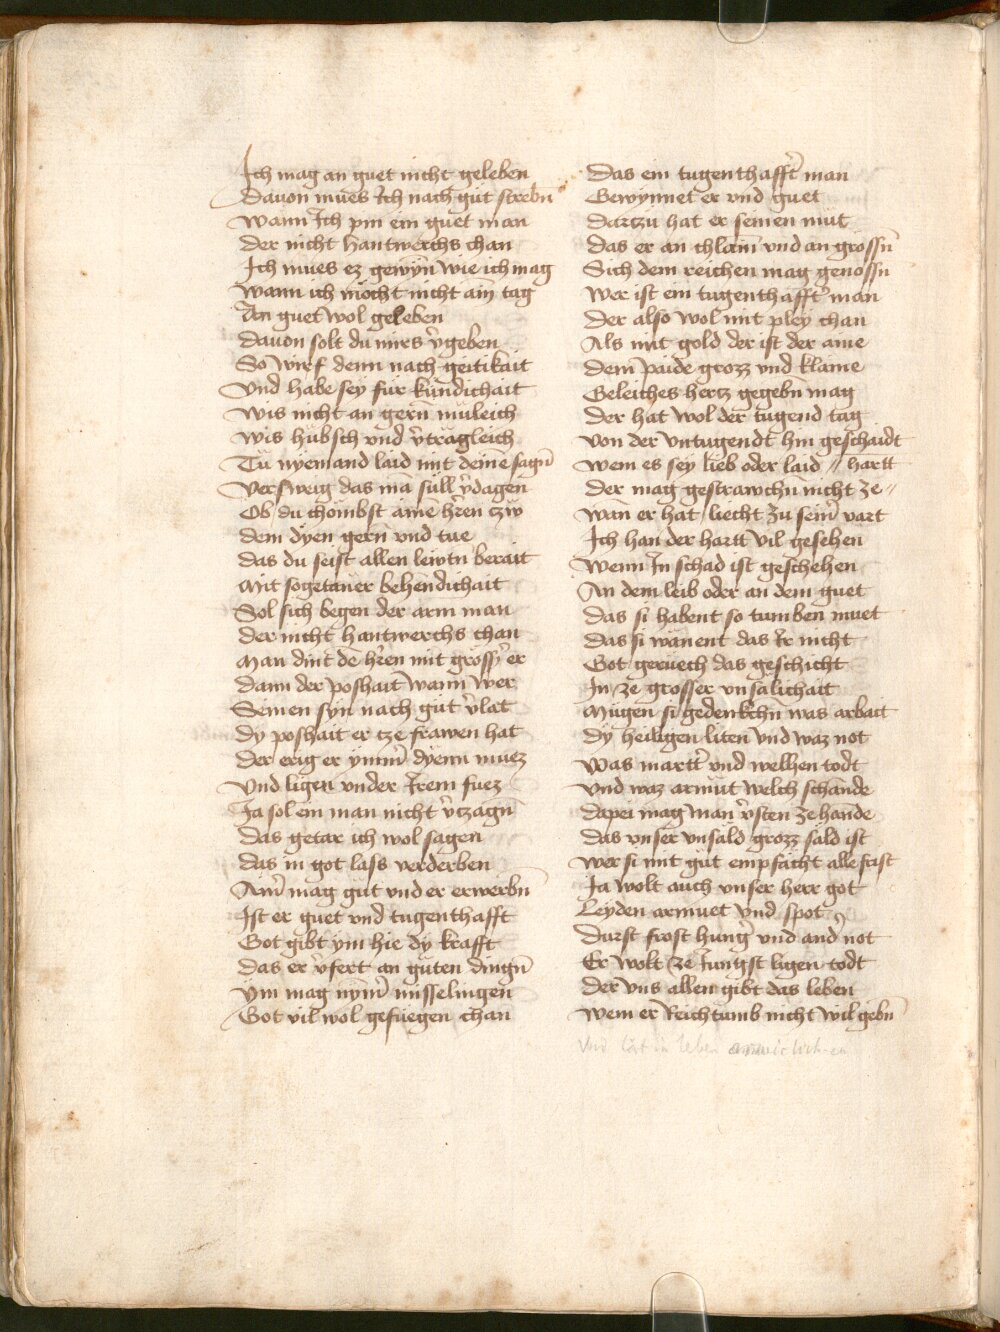 Ich mag an guet nicht geleben
Dauon mues Ich nach gut strebn̄
Wann Ich pin ein guet man
Der nicht hantwerchs chan
Ich mues ez gewyn̄ wie ich mag
Wann ich möcht nicht ain tag
An guet wol geleben
Dauon solt du mirs v̄geben
So wirf denn nach geitikait
Vnd habe sey für kündichait
Wis nicht an gern̄ müleich
Wis hübsch vnd v̄trägleich
Tü nyemand laid mit deinē sagn̄
Versweig das mā süll v̄dagen
Ob du chombst ainē hr̄en czw
Dem dyen gern̄ vnd tue
Das du seist allen lewtn berait
Mit sogetaner behendichait
Sol sich begen der arm man
Der nicht hantwerchs chan
Man dint dē hr̄en mit grossr̄ er
Dann der poshait wann wer
Seinen syn nach güt v̄lat
Dy poshait er cze frawen hat
Der erig er ymm̄ dyenn muez
Vnd ligen vnder Irem fuez
Ja sol ein man nicht v̄czagn̄
Das getar ich wol sagen
Das in got lass verderben
Ain̄ mag güt vnd er erwerbn̄
Ist er guet vnd tugenthafft
Got gibt ym hie dy krafft
Das er v̄fert an güten dingn̄
Vm mag nym̄ misselingen
Got vil wol gefuegen chan
Das ein tugenthafft̄ man
Gewynnet er vnd guet
Dartzu hat er seinen müt
Das er an chlain̄ vnd an grossn̄
Sich dem reichen mag genossn̄
Wer ist ein tugenthafft̄ man
Der also wol mit pley chan
Als mit gold der ist der aine
Dem paide grozz vnd klaine
Geleiches hertz gegebn̄ mag
Der hat wol der tugend tag
Von der vntugendt hin geschaidt
Wem es sey lieb oder laid // hartt
Der mag gestrawchn̄ nicht ze //
Wan er hat liecht zu sein̄ vart
Ich han der hartt vil gesehen
Wenn In schad ist geschehen
An dem leib oder an dem guet
Das si habent so tumben muet
Das si wänent das Ir nicht
Got geruech das geschicht
In ze grosser vnsälichait
Mügen si gedenkchn̄ was arbait
Dy heiligen liten vnd waz not
Was martt̄ vnd welhen todt
Vnd waz armüt welch schande
Dapei mag man v̄sten ze hande
Das vnser vnsäld grozz säld ist
Wer si mit gut empfächt alle frist
Ja wolt auch vnser herr got
Leyden armuet vnd spot
Durst frost hunḡ vnd and̄ not
Er wolt ze Jungst ligen todt
Der vns allen gibt das leben
Wem er Reichtumb nicht wil gebn̄
Vnd lät in leben